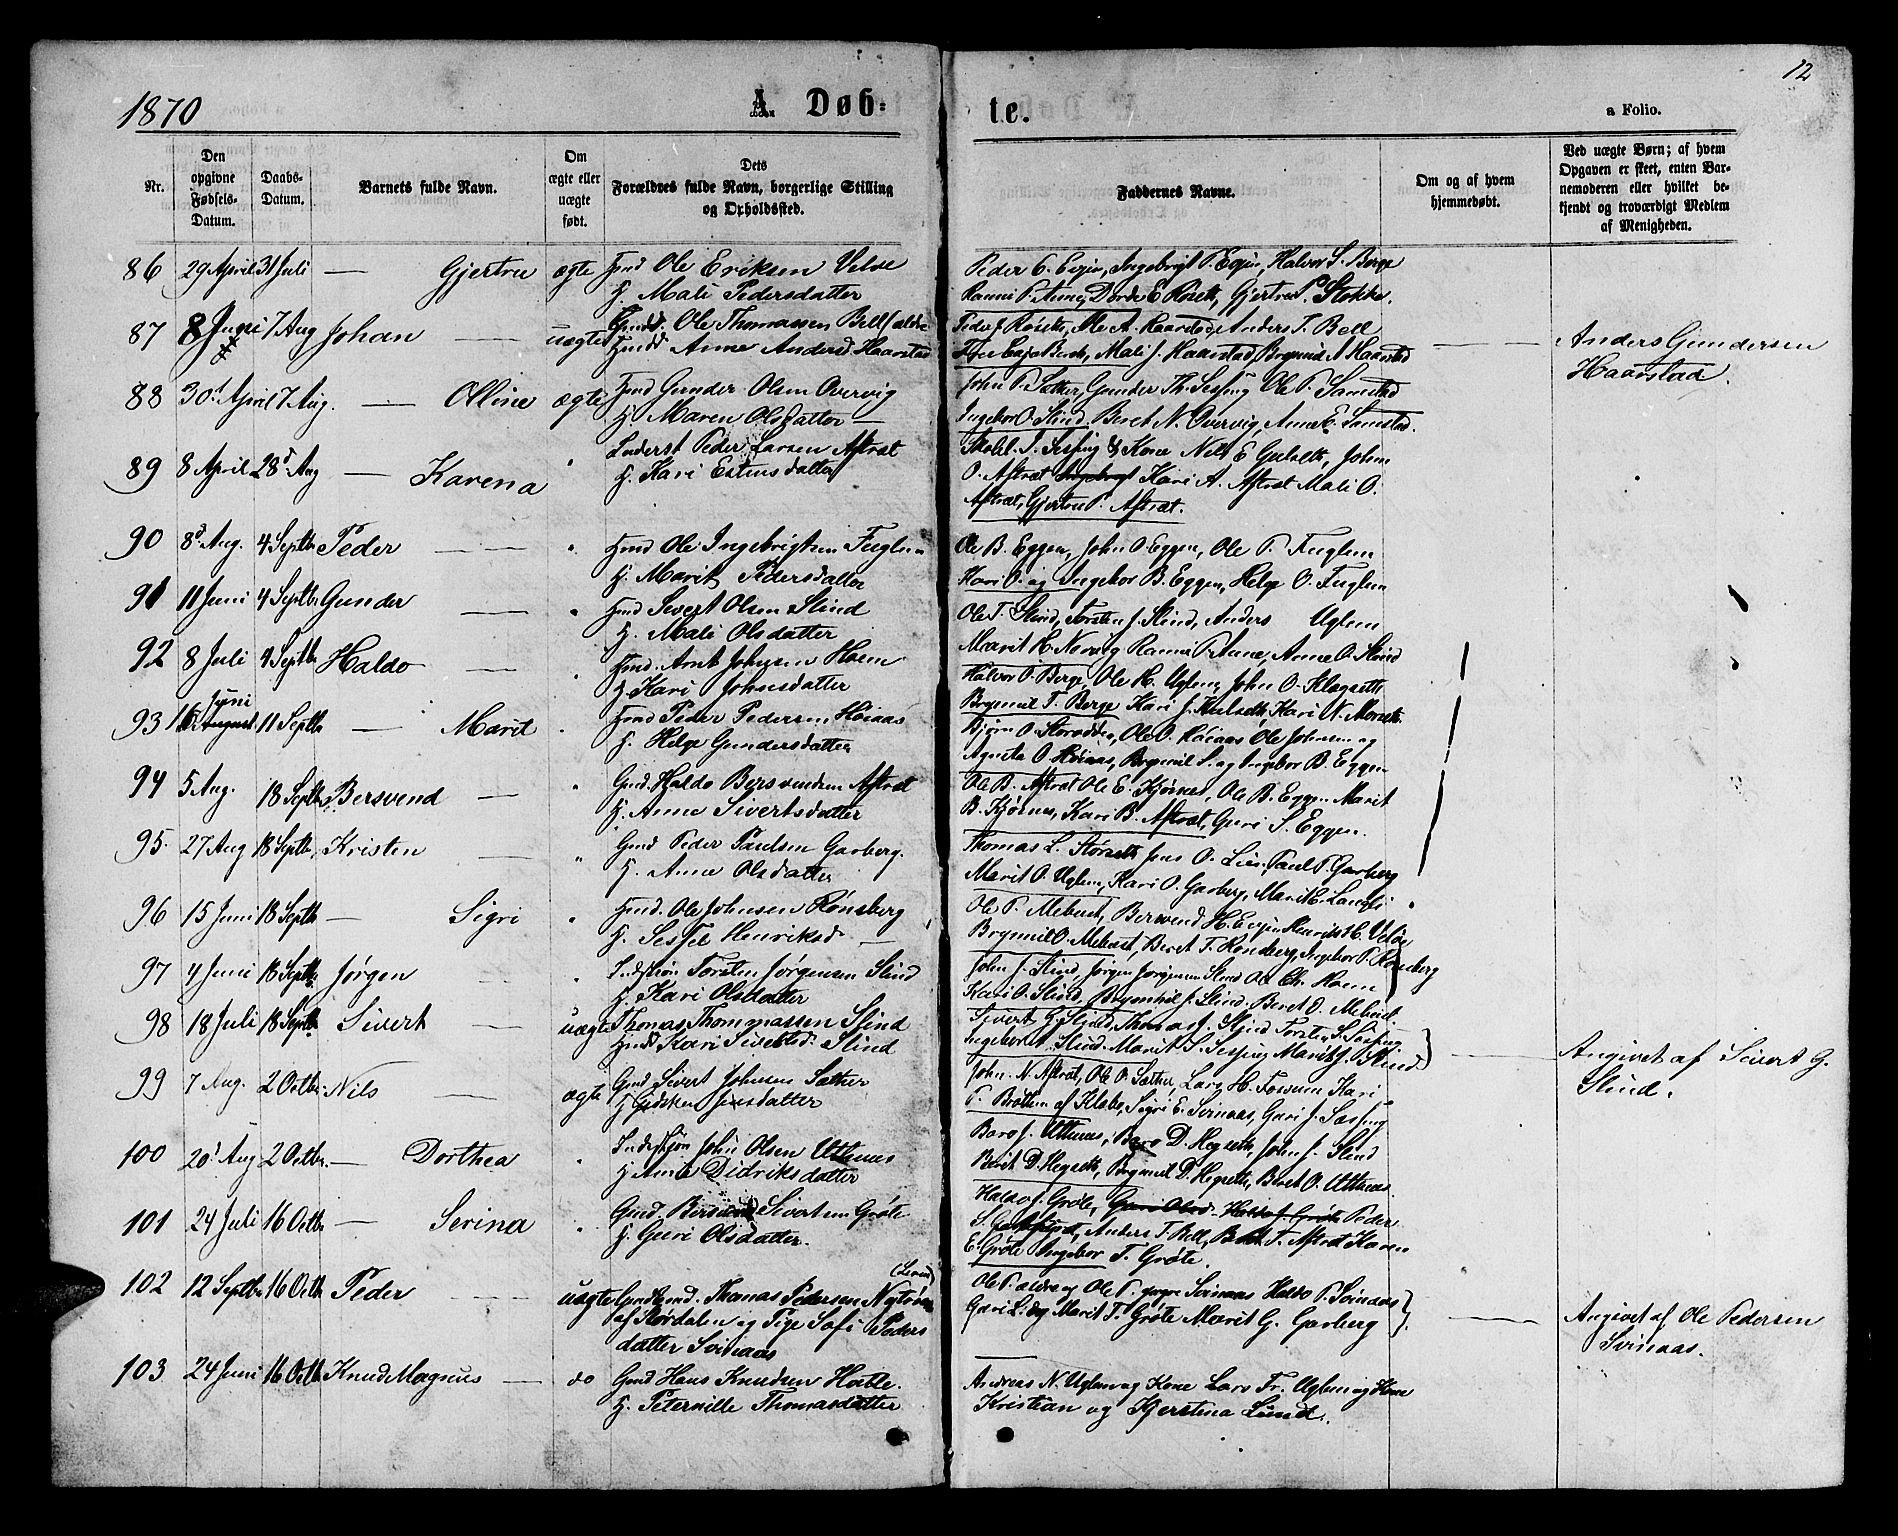 12
1870
A. Døb-
te.
a Folio.
Nr.
Den opgivne Fødsels-Datum.
Daabs-Datum.
Barnets fulde Navn.
Om ægte eller uægte født.
Dets Forældres fulde Navn, borgerlige Stilling og Opholdssted.
Faddernes Navne.
Om og af hvem hjemmedøbt.
Ved uægte Børn; af hvem Opgaven er skeet, enten Barnemoderen eller hvilket bekjendt og troværdigt Medlem af Menigheden.
86 29 April 31 Juli — Gjertru ægte Gmd Ole Eriksen Velve
H. Mali Pedersdatter
Peder E. Evjen, Ingebrigt P. Evjen, Halvor S. Berge
Ranni P. Aune, Dorde E. Røseth, Gjertru P. Stokke.
87 8 Juni 7 Aug Johan — uægte Ole Thomassen Bell
Anne Anders. Haarstad
Peder J. Røseth, Ole A. Haarstad, Anders T. Bell
Mali J. Haarstad, Brynnild A. Haarstad
Anders Gundersen
Haarstad.
88 30 April 7 Aug. — Olline ægte Hmd Gunder Olsen Overvig
H. Maren Olsdatter —
John P. Sather, Gunder Th. Sesseng Ole P. Samstad
Ingebor O. Slind, Beret N. Overvig Anne E. Samstad.
89 8 April 28 Aug — Karena " Inderst Peder Larsen Aftrat
H. Kari Estensdatter
J. Sesseng & Kone Nels E Guldseth, John
O. Aftrat Kari A. Aftrat Mali O.
Aftrat, Gjertru P. Aftrat.
90 8 Aug. 4 Septb Peder — " Hmd Ole Ingebrigtsen Fuglem
H. Marit Pedersdatter
Ole B. Eggen, John O. Eggen, Ole P. Fuglem
Kari O. og Ingebor B. Eggen, Helge O. Fuglem
91 11 Juni 4 Septb Gunder — " Hmd Sivert Olsen Slind
H. Mali Olsdatter
Ole T. Slind, Torsten J. Slind, Anders Uglem
Marit H. Norvig Ranni P. Aune, Anne O. Slind
92 8 Juli 4 Septb Haldo — " Hmd. Arnt Johnsen Hoem
H. Kari Johnsdatter
Halvor O. Berge, Ole H. Uglem, John O. Klegseth
Brynnil T. Berge Kari J. Kulseth, Kari N. Morseth
93 16 Juni 11 Septb — Marit " Hmd Peder Pedersen Høiaas
H. Helge Gundersdatter
Bjørn O. Storødden, Ole O. Høiaas Ole Johnsen og
Agnita O. Høiaas, Brynnil S. og Ingebor B. Eggen
94 5 Aug. 18 Septb Bersvend — " Gmd. Haldo Bersvendsen Aftrat
H. Anne Sivertsdatter
Ole B. Aftrat Ole E. Kjøsnes, Ole B. Eggen. Marit
B. Kjøsnes, Kari B. Aftrat, Guri S. Eggen.
95. 27 Aug 18 Septb. Kristen — " Gmd Peder Paulsen Garberg.
H. Anne Olsdatter
Thomas L. Størseth Jens O. Lien Paul P. Garberg
Marit O. Uglem, Kari O. Garberg, Marit E. Langli
96 15 Juni 18 Septb — Sigri " Hmd. Ole Johnsen Rønsberg
H. Sessel Henriksd —
Ole P. Mebust, Bersvend H. Evjen Henrik H. Velve
Brynnil O. Mebust, Beret T. Rønsberg, Ingebor P. Rønsberg
97 4 Juni 18 Septb Jørgen — " Torsten Jørgensen Slind
H. Kari Olsdatter
John J. Slind, Jørgen Jørgensen Slind Ole Ch. Hoem
Kari O. Slind, Brynhil J. Slind, Beret O. Mebust
98 18 Juli 18 Septb Sivert — uægte Thomas Thommassen Slind
Kari Sivertsd. Slind
Sivert G. Slind, Thomas J. Slind Torsten S. Sesseng
Ingebor A. Slind. Marit S. Sesseng Marit J. P. Slind
Angivet af Sivert G.
Slind.
99 7 Aug. 2 Octbr. Nils — ægte Gmd Sivert Johnsen Sather
H. Gidsken Jensdatter
John N. Aftrat, Ole O. Sather, Lars H. Fossum Kari
P. Brøttem af Klæbo, Sigri E. Svinaas, Guri J. Sesseng
100 20 Aug 2 Octbr. — Dorthea " John Olsen Utthuus
H. Anne Didriksdatter
Baro J. Utthuus, Baro D. Hegseth, John J. Slind
Berit D. Hegseth, Brynnil D. Hegseth, Beret O. Utthuus
101 24 Juli 16 Octb — Serina " Gmd. Bersvend Sivertsen Grøte
H. Guri Olsdatter.
Haldo J. Grøte, Guri Olsd. Haldo J. Grøte Peder
S. Anders T. Bell, Berit T. Aftrat Karen
E. Grøte Ingebor T. Grøte.
102 12 Septbr 16 Octb Peder — uægte Thomas Pedersen Nytrøen
af Stordalen og Pige Sofi Peders
datter Svinaas
Ole P. aldre og Ole P. yngre Svinaas Haldo P. Svinaas
Guri L. og Marit T. Grøte Marit G. Garberg
Angivet af Ole Pedersen
Svinaas.
103 24 Juni 16 Octb Knud Magnus — do Gmd Hans Knudsen Hoble.
H. Peternille Thomasdatter
Andreas N. Uglem og Kone Lars Fr. Uglem og Kone
Kristian og Kjerstina Lund.